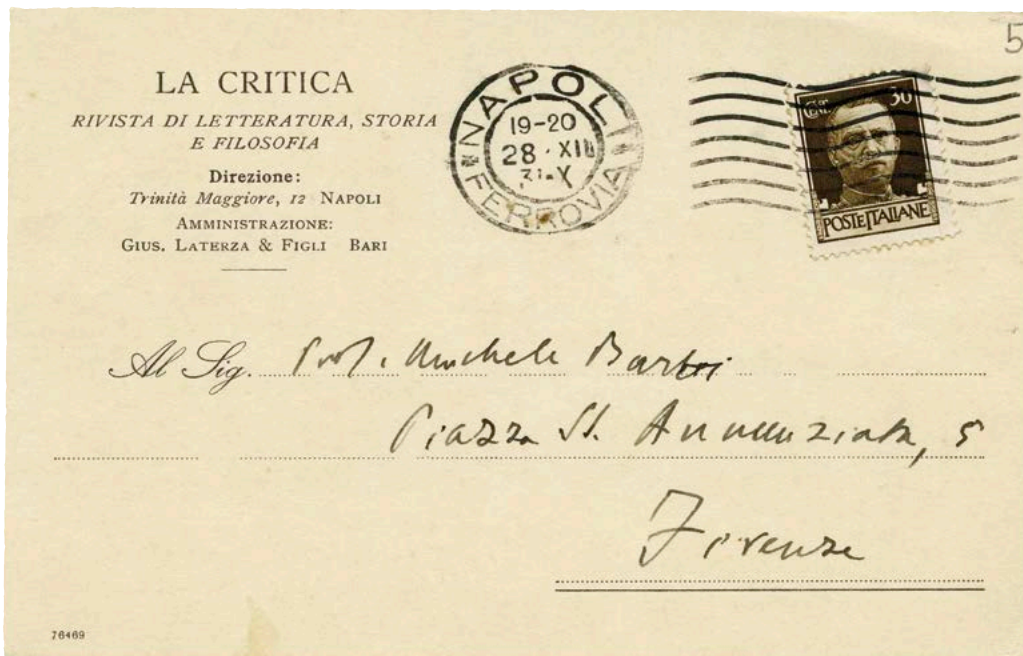 5
LA CRITICA
RIVISTA DI LETTERATURA, STORIA
E FILOSOFIA
Direzione:
Trinità Maggiore, 12 NAPOLI
AMMINISTRAZIONE:
GIUS. LATERZA & FIGLI BARI
NAPOLI
19-20
28·XII
31-X
FERROVIA
Cent 30
POSTE ITALIANE
Al Sig. Prof. Michele Barbi
Piazza SS. Annunziata, 5
Firenze
76469